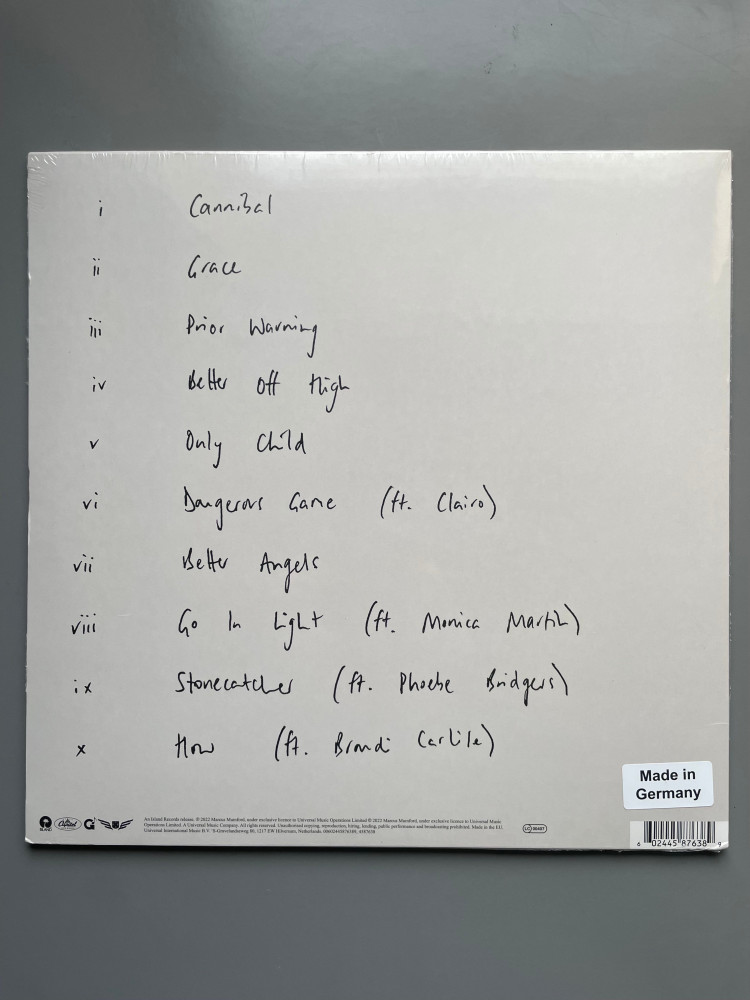 i Cannibal
ii Grace
iii Prior Warning
iv Better Off High
v Only Child
vi Dangerous Game (ft. Clairo)
vii Better Angels
viii Go In Light (ft. Monica Martin)
ix Stonecatcher (ft. Phoebe Bridgers)
x How (ft. Brandi Carlile)
Made in
Germany
ISLAND Capitol
An Island Records release. ℗ 2022 Marcus Mumford, under exclusive licence to Universal Music Operations Limited © 2022 Marcus Mumford, under exclusive licence to Universal Music
Operations Limited. A Universal Music Company. All rights reserved. Unauthorised copying, reproduction, hiring, lending, public performance and broadcasting prohibited. Made in the E.U.
Universal International Music B.V. 'S-Gravelandseweg 80, 1217 EW Hilversum, Netherlands.
LC 00407
6 02445 87638 9